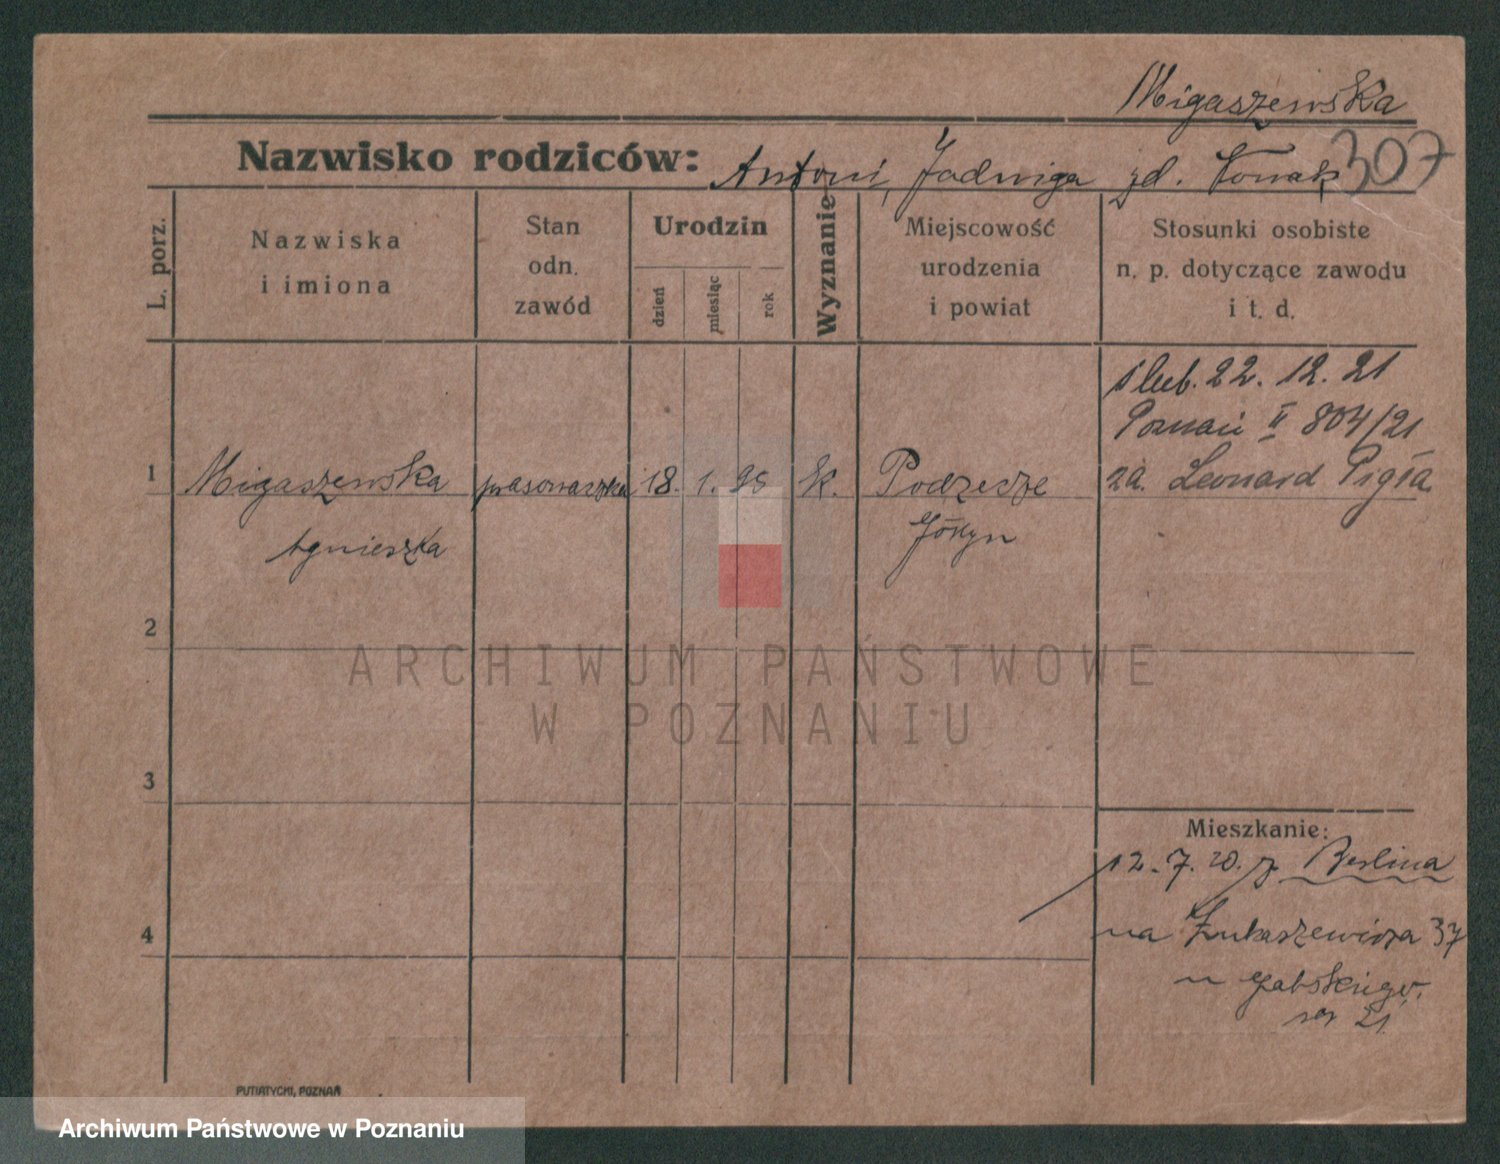 Migaszewska
307
Nazwisko rodziców: Antoni, Jadwiga zd. Nowak
L. porz.
Nazwiska
i imiona
Stan
odn.
zawód
Urodzin
dzień
miesiąc
rok
Wyznanie
Miejscowość
urodzenia
i powiat
Stosunki osobiste
n. p. dotyczące zawodu
i t. d.
ślub. 22. 12. 21
Poznań II 804/21
za. Leonard Pigła
1 Migaszewska prasowaczka 18. 1. k. Podrzecze
Agnieszka Gostyn
2
3
4
Mieszkanie:
12. 7. 20. z Berlina
na Łukaszewicza 37
u
21
PUTIATYCKI, POZNAŃ
ARCHIWUM PAŃSTWOWE
W POZNANIU
Archiwum Państwowe w Poznaniu